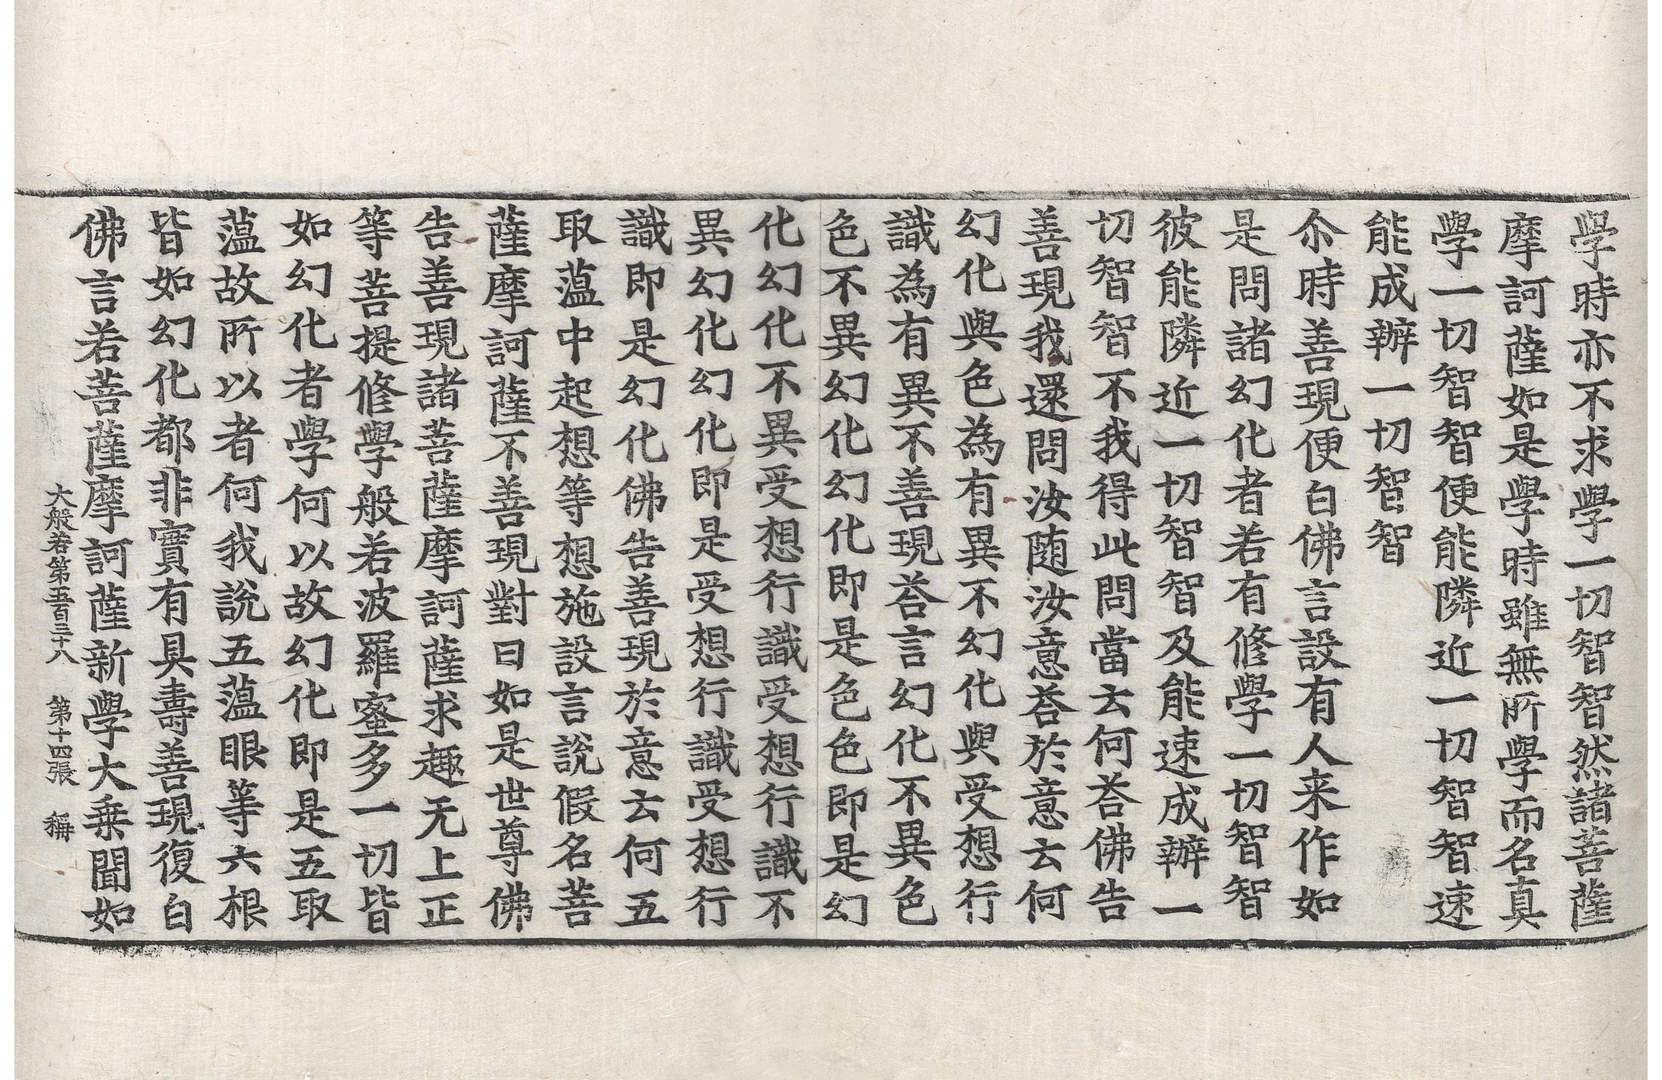 學時亦不求學一切智智然諸菩薩
摩訶薩如是學時雖無所學而名真
學一切智智便能隣近一切智智速
能成辦一切智智
尒時善現便白佛言設有人来作如
是問諸幻化者若有修學一切智智
彼能隣近一切智智及能速成辦一
切智智不我得此問當云何荅佛告
善現我還問汝随汝意荅於意云何
幻化與色為有異不幻化與受想行
識為有異不善現荅言幻化不異色
色不異幻化幻化即是色色即是幻
化幻化不異受想行識受想行識不
異幻化幻化即是受想行識受想行
識即是幻化佛告善現於意云何五
取蕰中起想等想施設言說假名菩
薩摩訶薩不善現對曰如是世尊佛
告善現諸菩薩摩訶薩求趣无上正
等菩提修學般若波羅蜜多一切皆
如幻化者學何以故幻化即是五取
蕰故所以者何我說五蕰眼等六根
皆如幻化都非實有具壽善現復白
佛言若菩薩摩訶薩新學大乗聞如
大般若第五百三十八　第十四張　稱